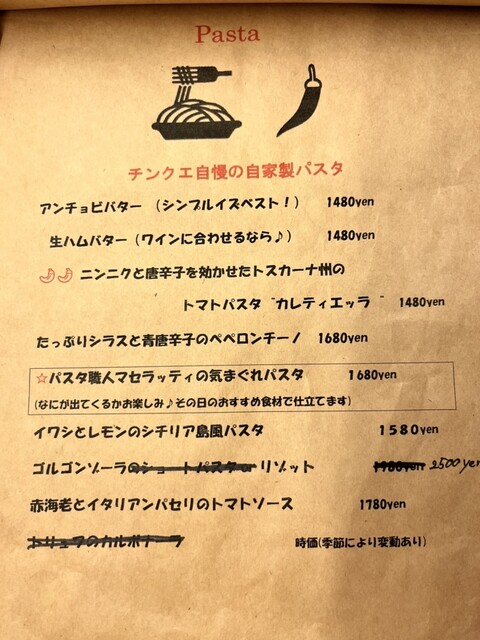 Pasta
チンクエ自慢の自家製パスタ
アンチョビバター (シンプルイズベスト!) 1480yen
生ハムバター(ワインに合わせるなら♪) 1480yen
ニンニクと唐辛子を効かせたトスカーナ州の
トマトパスタ "カレティエッラ" 1480yen
たっぷりシラスと青唐辛子のペペロンチーノ 1680yen
☆パスタ職人マセラッティの気まぐれパスタ 1680yen
(なにが出てくるかお楽しみ♪その日のおすすめ食材で仕立てます)
イワシとレモンのシチリア島風パスタ 1580yen
ゴルゴンゾーラのショートパスタor リゾット 1980yen 2500yen
赤海老とイタリアンパセリのトマトソース 1780yen
トリュフのカルボナーラ 時価(季節により変動あり)